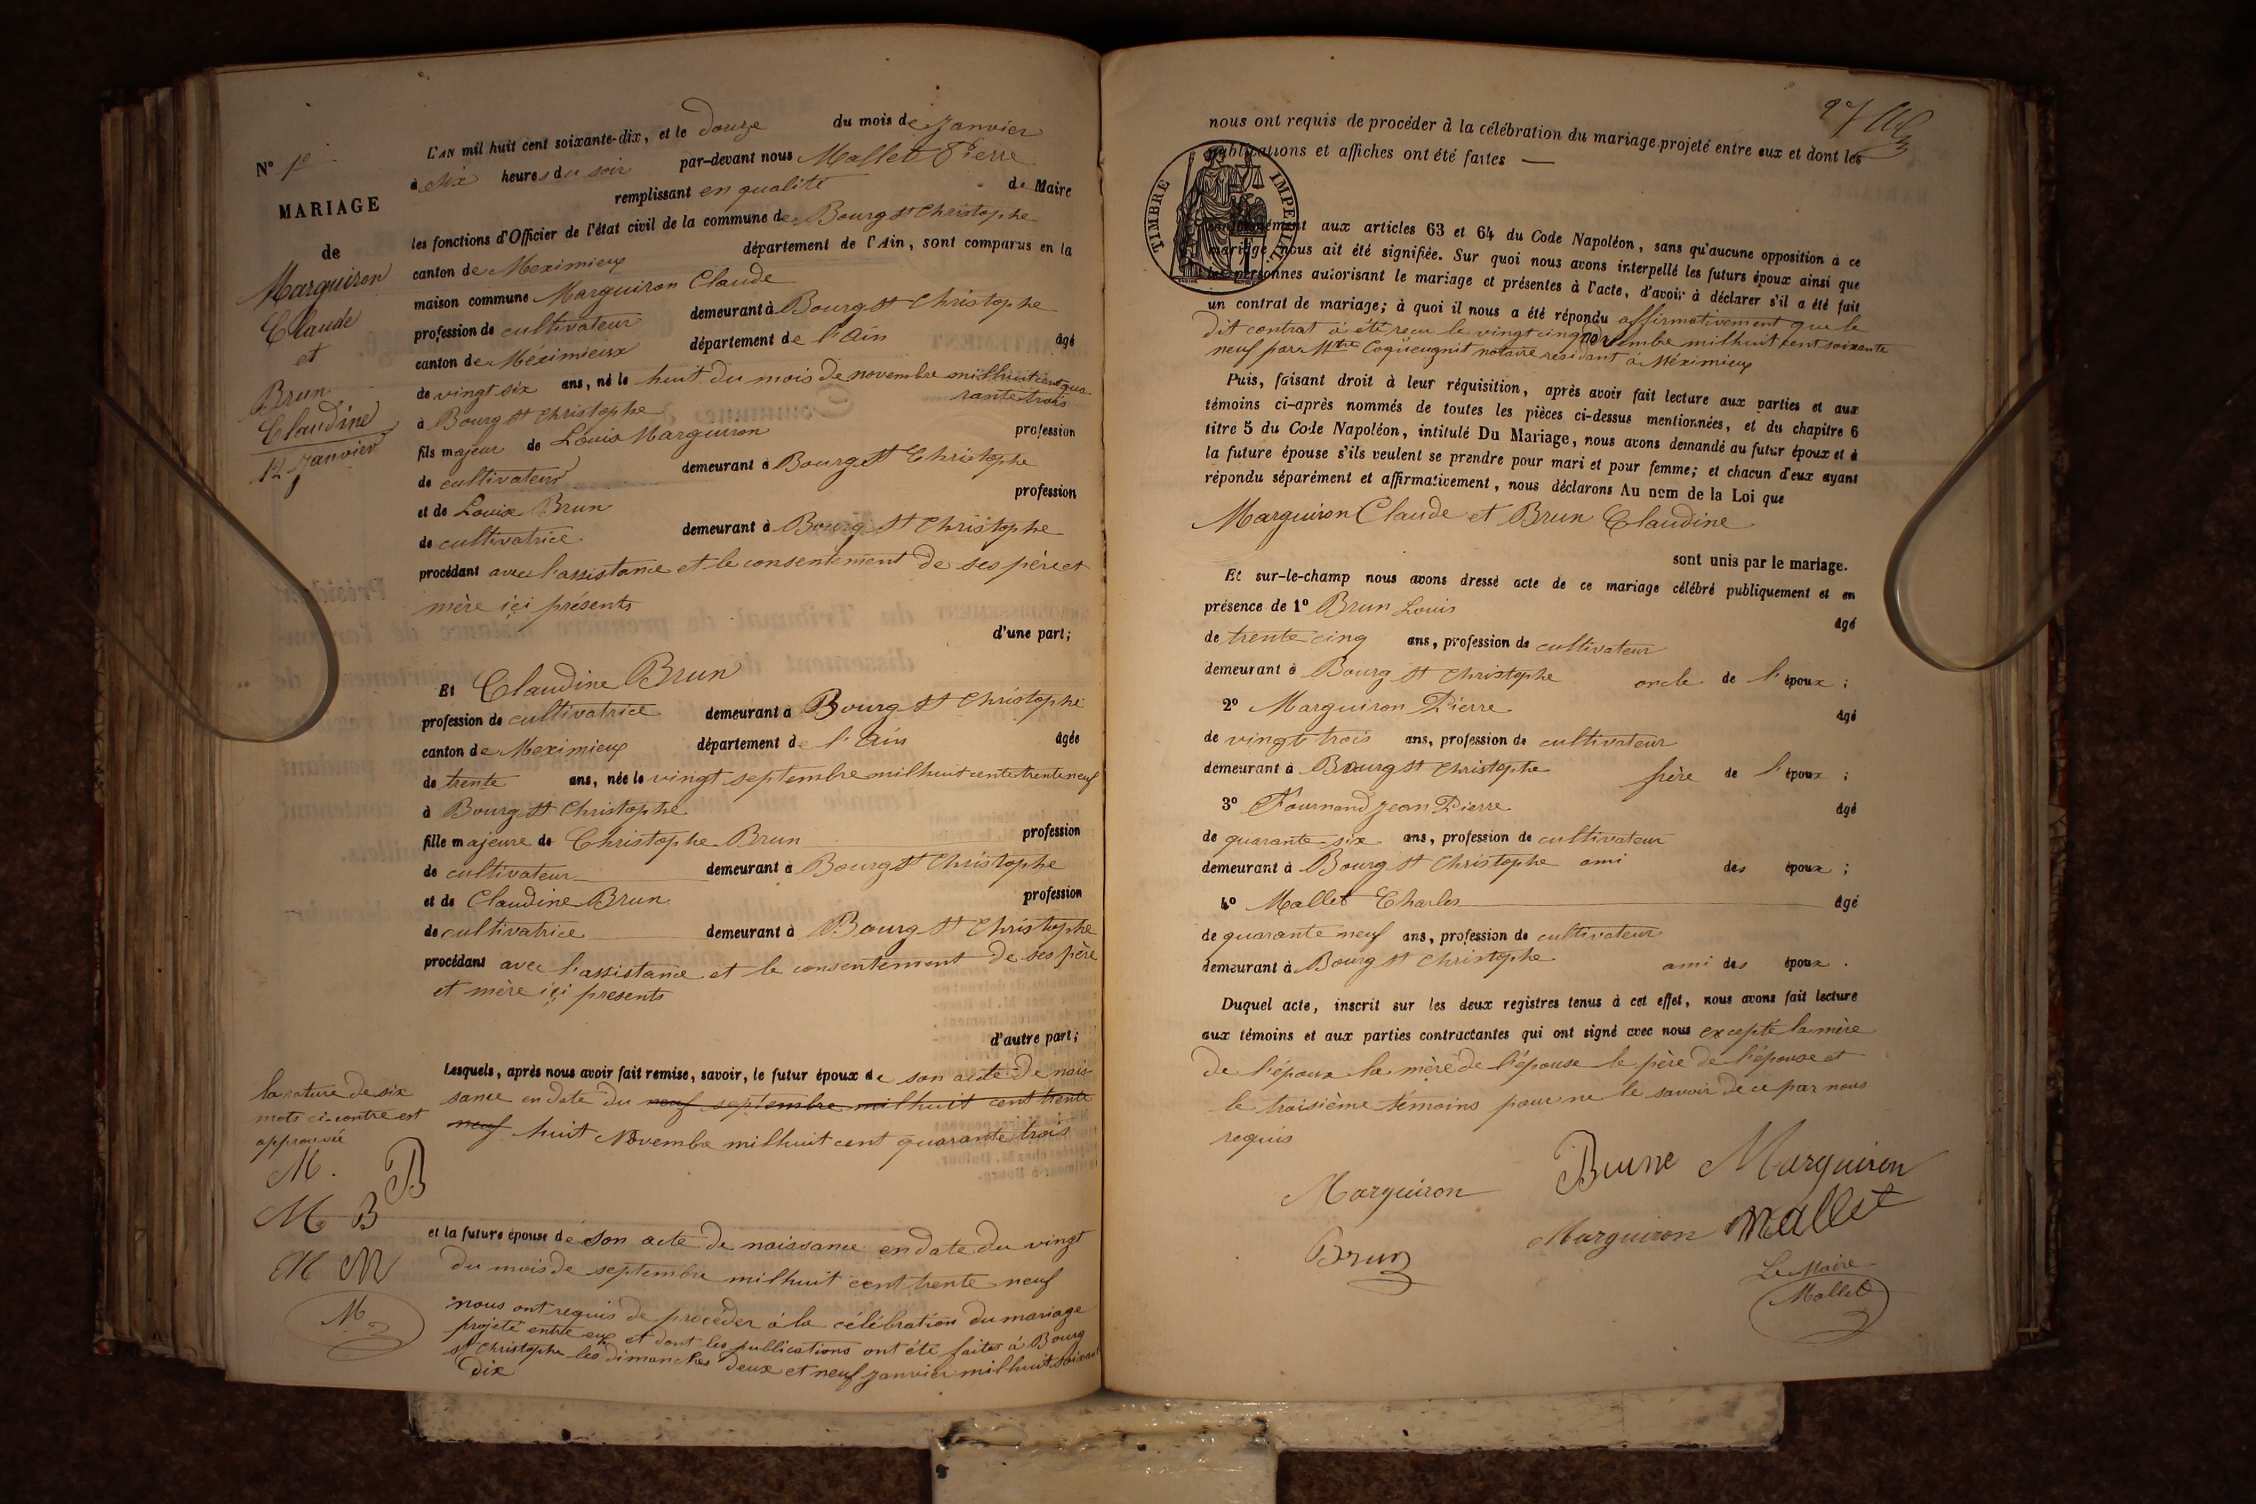 N° 1er
MARIAGE
de
Marguiron
Claude
et
Brun
Claudine
12 Janvier
L'AN mil huit cent soixante-dix, et le douze du mois de Janvier
à six heures du soir par-devant nous Mallet Pierre
remplissant en qualité de Maire
les fonctions d'Officier de l'état civil de la commune de Bourg St Christophe
canton de Meximieux département de l'Ain, sont comparus en la
maison commune Marguiron Claude
profession de cultivateur demeurant à Bourg St Christophe
canton de Méximieux département de l'Ain âgé
de vingt six ans, né le huit du mois de novembre mil huit cent qua-
rante trois
à Bourg St Christophe
fils majeur de Louis Marguiron profession
de cultivateur demeurant à Bourg St Christophe
et de Louise Brun profession
de cultivatrice demeurant à Bourg St Christophe
procédant avec l'assistance et le consentement de ses père et
mère içi présents
d'une part;
Et Claudine Brun
profession de cultivatrice demeurant à Bourg St Christophe
canton de Meximieux département de l'Ain âgée
de trente ans, née le vingt septembre mil huit cent trente neuf
à Bourg St Christophe
fille majeure de Christophe Brun profession
de cultivateur demeurant à Bourg St Christophe
et de Claudine Brun profession
de cultivatrice demeurant à Bourg St Christophe
procédant avec l'assistance et le consentement de ses père
et mère içi presents
d'autre part;
Lesquels, après nous avoir fait remise, savoir, le futur époux de son acte de nais-
sance en date du neuf septembre mil huit cent trente
neuf huit Novembre mil huit cent quarante trois
la rature de six
mots ci-contre est
approuvée
M.
B
M B
M M
M
et la future épouse de son acte de naissance en date du vingt
du mois de septembre mil huit cent trente neuf
nous ont requis de procéder à la célébration du mariage
projeté entre eux et dont les publications ont été faites à Bourg
St Christophe les dimanches deux et neuf janvier mil huit soixante
dix
27
nous ont requis de procéder à la célébration du mariage projeté entre eux et dont les
publications et affiches ont été faites —
TIMBRE IMPERIAL
conformément aux articles 63 et 64 du Code Napoléon, sans qu'aucune opposition à ce
mariage nous ait été signifiée. Sur quoi nous avons interpellé les futurs époux ainsi que
les personnes autorisant le mariage et présentes à l'acte, d'avoir à déclarer s'il a été fait
un contrat de mariage; à quoi il nous a été répondu affirmativement que le
dit contrat a été reçu le vingt cinq novembre mil huit cent soixante
neuf par Mtre notaire residant à Méximieux
Puis, faisant droit à leur réquisition, après avoir fait lecture aux parties et aux
témoins ci-après nommés de toutes les pièces ci-dessus mentionnées, et du chapitre 6
titre 5 du Code Napoléon, intitulé Du Mariage, nous avons demandé au futur époux et à
la future épouse s'ils veulent se prendre pour mari et pour femme; et chacun d'eux ayant
répondu séparément et affirmativement, nous déclarons Au nom de la Loi que
Marguiron Claude et Brun Claudine
sont unis par le mariage.
Et sur-le-champ nous avons dressé acte de ce mariage célébré publiquement et en
présence de 1° Brun Louis âgé
de trente cinq ans, profession de cultivateur
demeurant à Bourg St Christophe oncle de l'époux;
2° Marguiron Pierre âgé
de vingt trois ans, profession de cultivateur
demeurant à Bourg St Christophe frère de l'époux;
3° Fournand Jean Pierre âgé
de quarante six ans, profession de cultivateur
demeurant à Bourg St Christophe ami des époux;
4° Mallet Charles âgé
de quarante neuf ans, profession de cultivateur
demeurant à Bourg St Christophe ami des époux.
Duquel acte, inscrit sur les deux registres tenus à cet effet, nous avons fait lecture
aux témoins et aux parties contractantes qui ont signé avec nous excepté la mère
de l'époux la mère de l'épouse le père de l'épouse et
le troisième témoins pour ne le savoir de ce par nous
requis
Marguiron Brune Marguiron
Brun Marguiron Mallet
Le Maire
Mallet